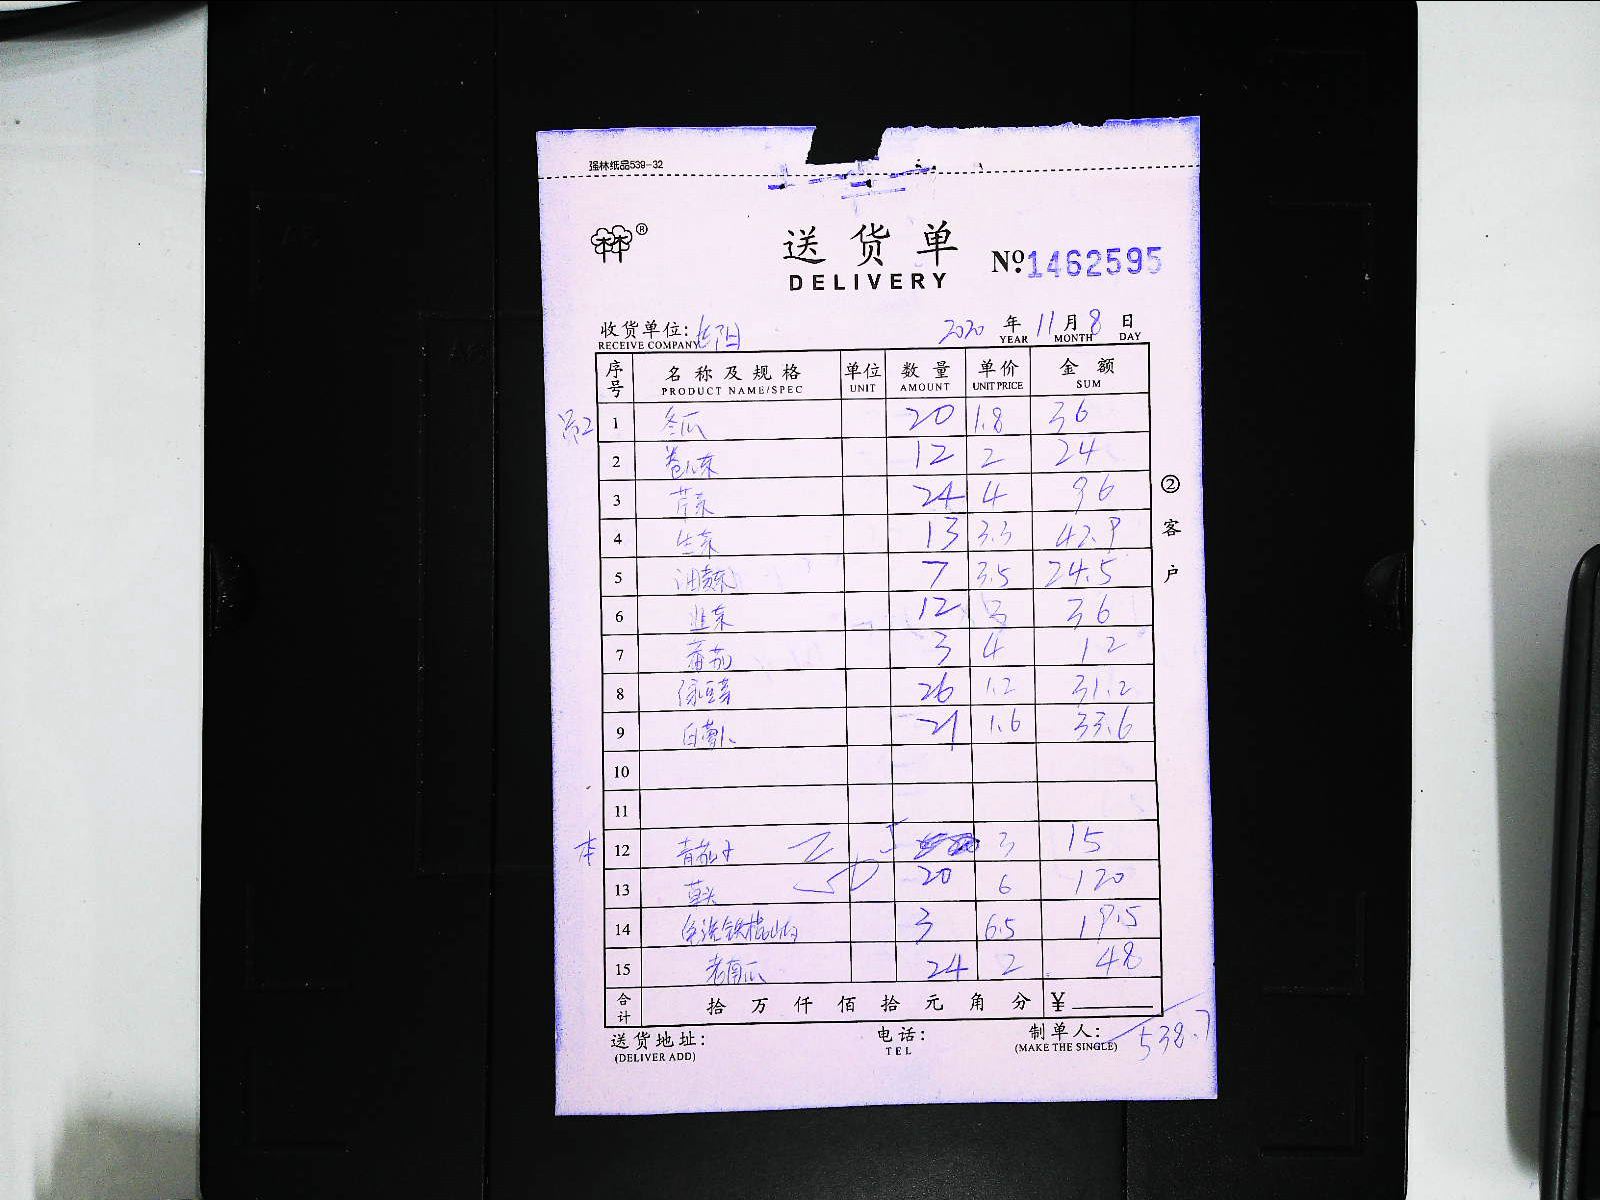 强林纸品539-32
林®
送货单
DELIVERY
№1462595
收货单位: 长阳 2020年11月8日
RECEIVE COMPANY YEAR MONTH DAY
序号 名称及规格 单位 数量 单价 金额
PRODUCT NAME/SPEC UNIT AMOUNT UNIT PRICE SUM
1 冬瓜 20 1.8 36
2 卷心菜 12 2 24
3 芹菜 24 4 96
4 生菜 13 3.3 42.9
5 油麦菜 7 3.5 24.5
6 韭菜 12 3 36
7 蕃茄 3 4 12
8 绿豆芽 26 1.2 31.2
9 白萝卜 21 1.6 33.6
10
11
本 12 青茄子 5 3 15
13 草头 20 6 120
14 免洗铁棍山药 3 6.5 19.5
15 老南瓜 24 2 48
合计 拾万仟佰拾元角分 ¥
538.7
②客户
送货地址: 电话: 制单人:
(DELIVER ADD) TEL (MAKE THE SINGLE)